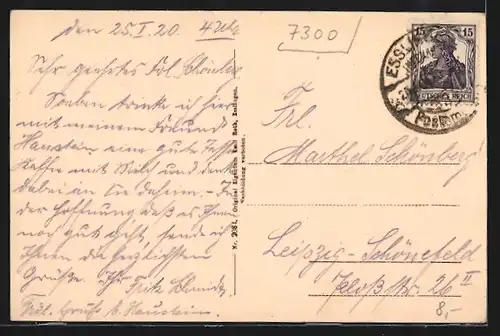 den 25.I.20. 4 Uhr
Sehr geehrtes Frl. Schönberg
Soeben trinke ich hier
mit meinem Freund
Haustein eine gute Tasse
Kaffee mit Milch und denke
dabei an Sie daheim. - In
der Hoffnung daß es Ihnen
noch gut geht, sende ich
Ihnen die herzlichsten
Grüße. Ihr Fritz Schmidt
Frdl. Gruß H. Haustein.
Nr. 2081. Original Eigentum Karl Roth, Esslingen.
Nachbildung verboten.
7300
15 15
DEUTSCHES REICH
ESSL
Frl.
Marthel Schönberg
Leipzig-Schönefeld
Schloßstr. 26 II
8,-